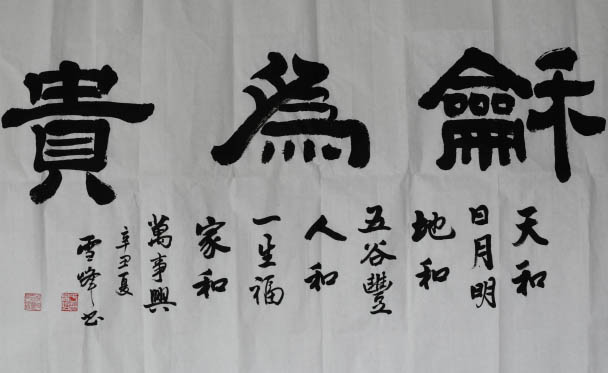 龢為貴
天和
日月明
地和
五谷豐
人和
一生福
家和
萬事興
辛丑夏
雪峰书